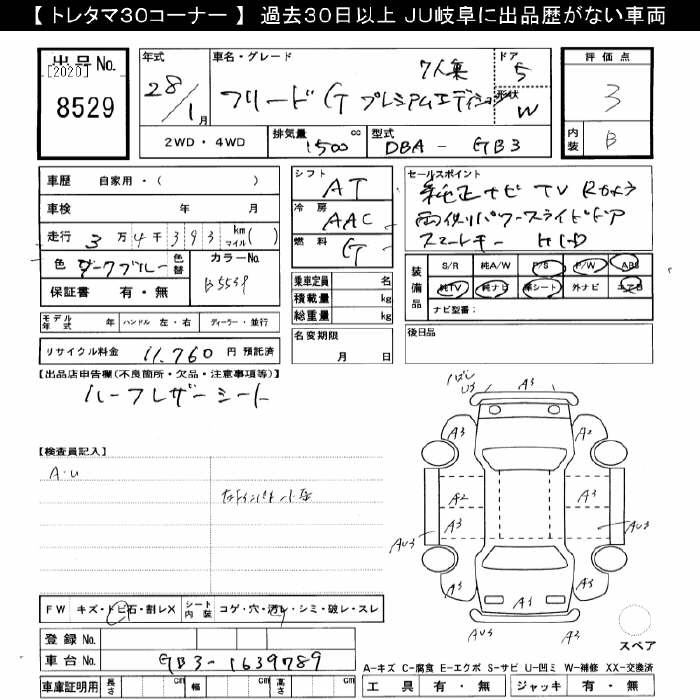 【 トレタマ30コーナー 】 過去30日以上 JU岐阜に出品歴がない車両
出品No.
[2020]
8529
年式
28/1月
車名・グレード
7人乗
フリード G プレミアムエディション
ドア
5
形状
W
評価点
3
内装
B
2WD・4WD
排気量
1500
cc
型式
DBA - GB3
車歴 自家用・( )
車検 年 月
走行 3万4千393 km マイル( )
色 ダークブルー
色替
カラーNo.
B553P
保証書 有・無
シフト
AT
冷房
AAC
燃料
G
セールスポイント
純正ナビ TV Rカメラ
両側パワースライドドア
スマートキー HID
乗車定員 名
積載量 kg
総重量 kg
装備品
S/R 純A/W P/S P/W ABS
純TV 純ナビ 革シート 外ナビ エアB
ナビ型番:
モデル年式 年 ハンドル 左・右 ディーラー・並行
名変期限
月 日
後日品
リサイクル料金 11,760 円 預託済
【出品店申告欄(不良箇所・欠品・注意事項等)】
ハーフレザーシート
【検査員記入】
A・U
A3
A3
A2
A2
A3
A3
AU3
AU3
A3
A3
A3
AU3
FW キズ・トビ石・割レX
シート内装 コゲ・穴・汚レ・シミ・破レ・スレ
登録 No.
車台 No. GB3-1639789
スペア
A-キズ C-腐食 E-エクボ S-サビ U-凹ミ W-補修 XX-交換済
車庫証明用 長さ cm 幅 cm 高さ cm
工具 有・無 ジャッキ 有・無